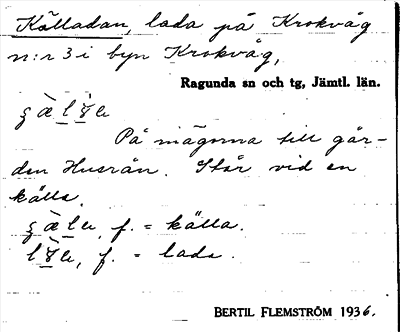 Källadan, lada på Krokvåg
n:r 3 i byn Krokvåg,
Ragunda sn och tg, Jämtl. län.
På mägorna till går-
den Husrån. Står vid en
källa.
f. = källa.
f. = lada.
BERTIL FLEMSTRÖM 1936.